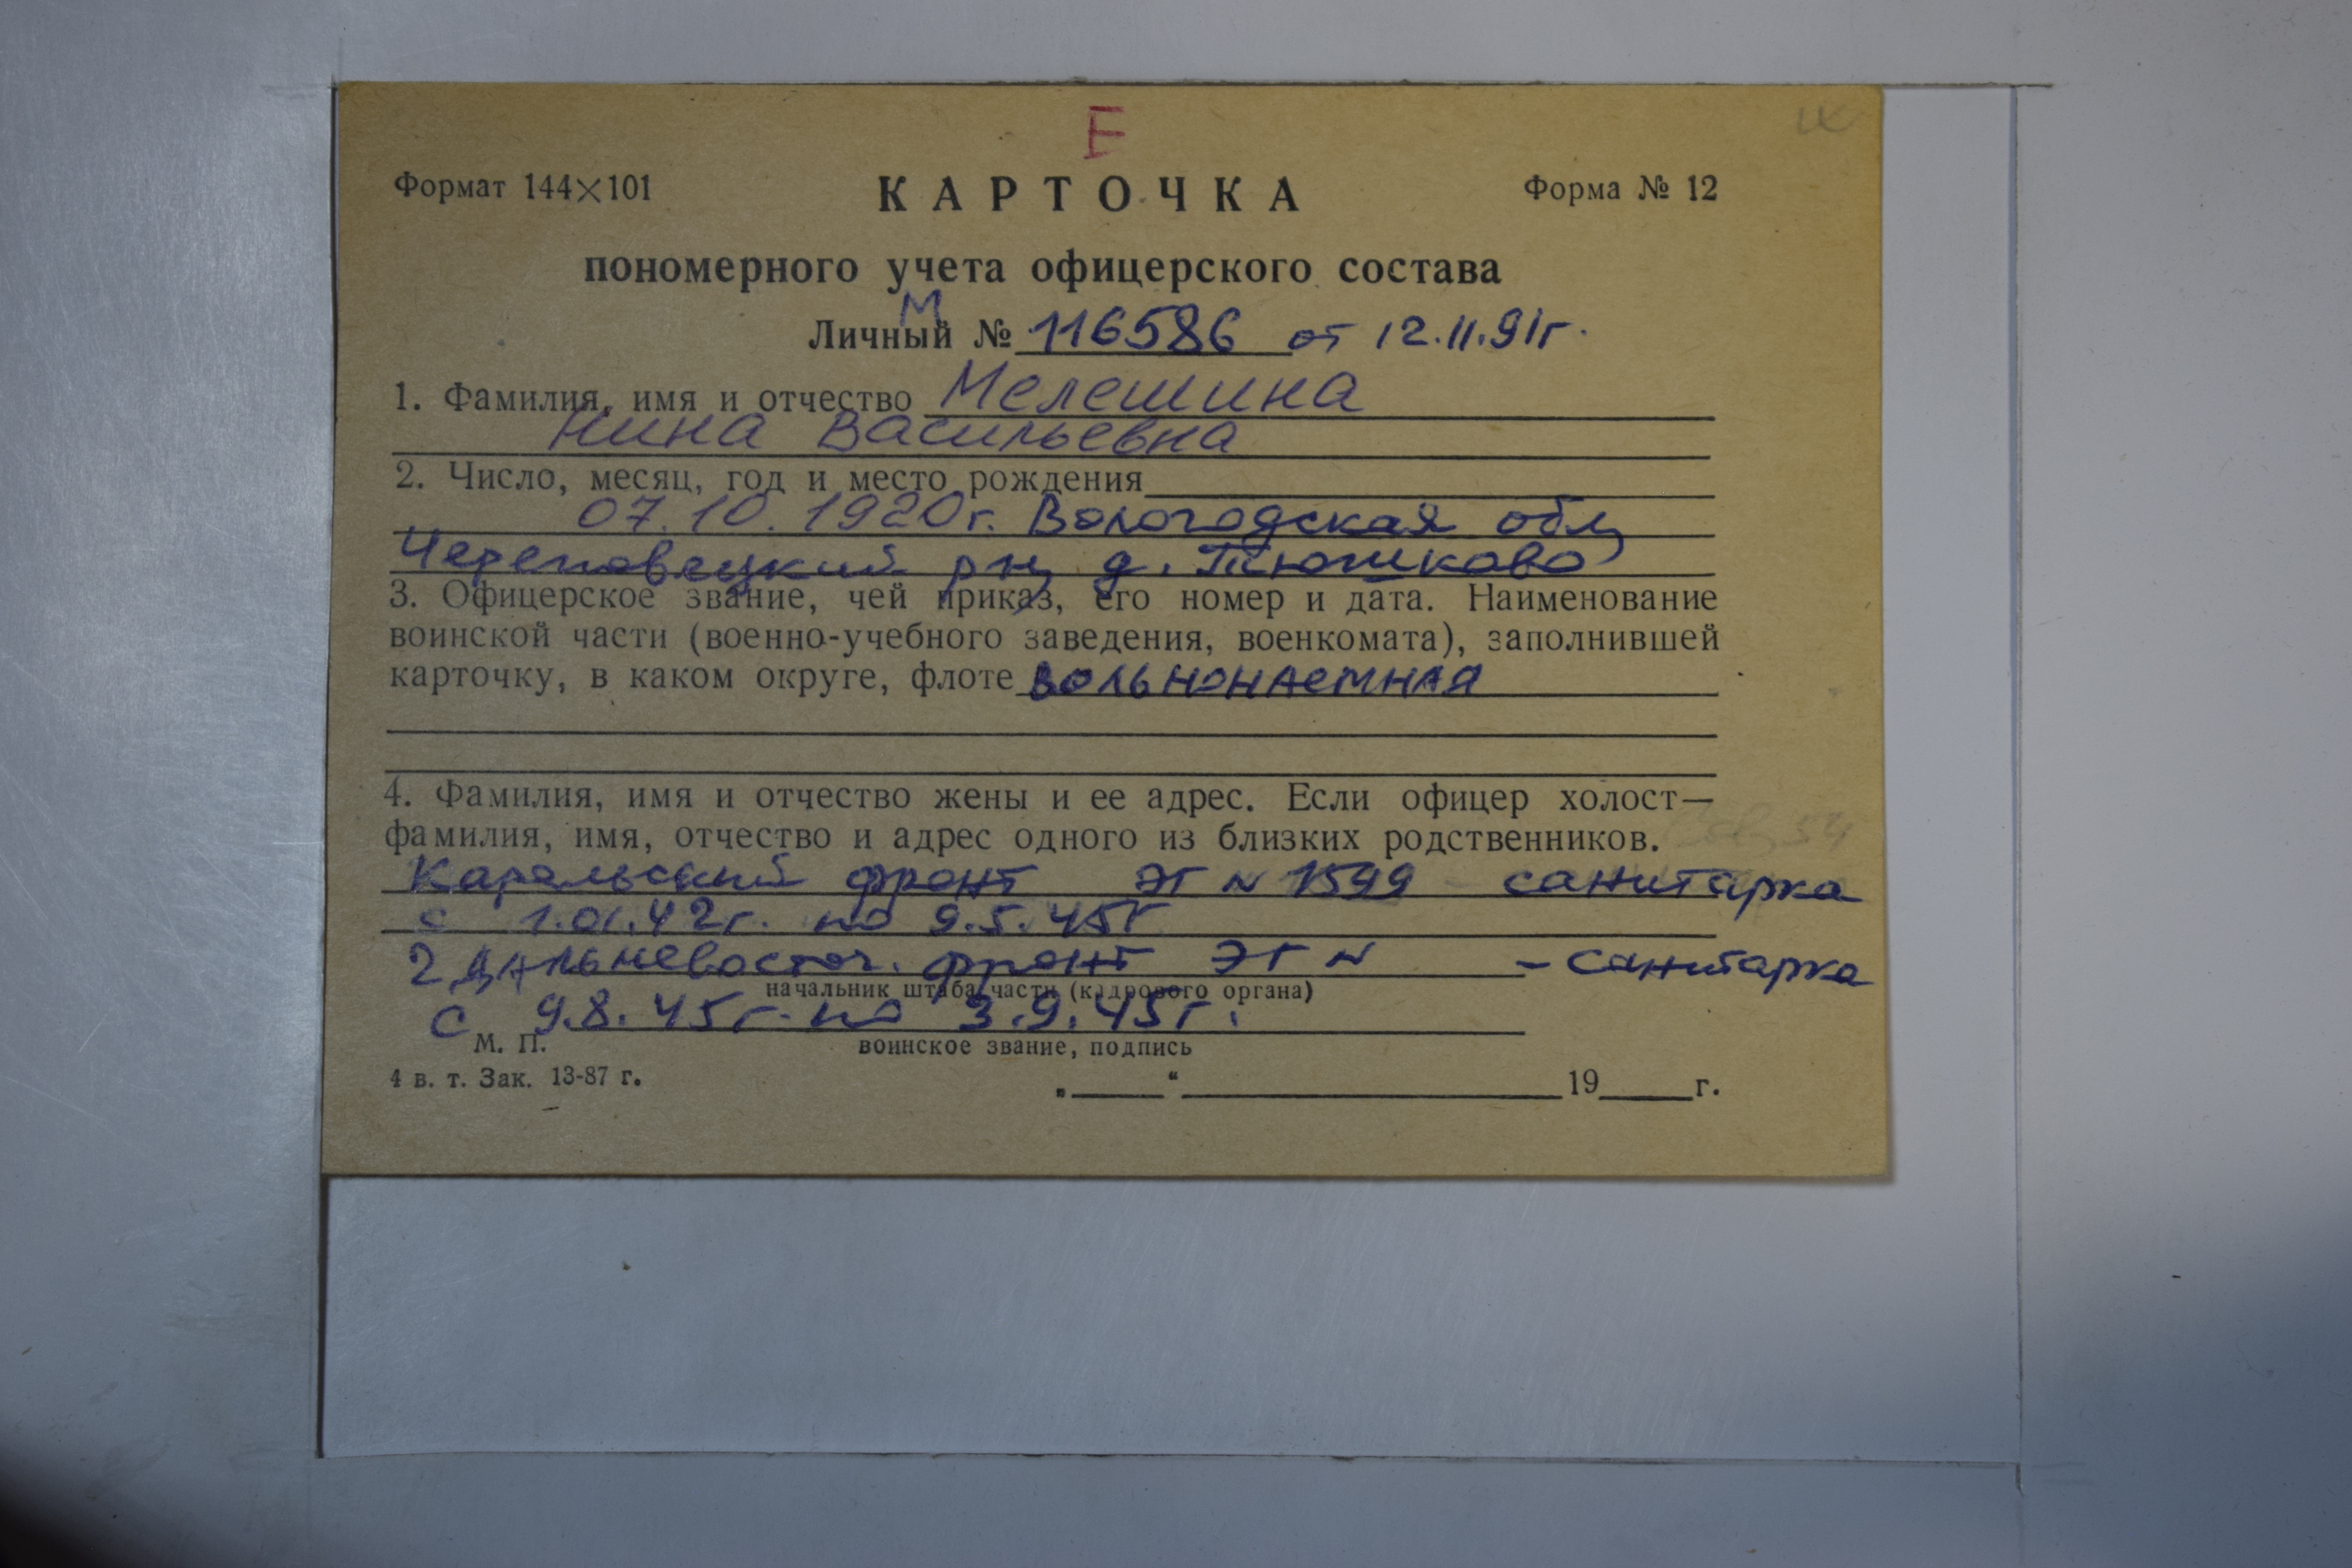 Е
Формат 144×101 КАРТОЧКА Форма № 12
пономерного учета офицерского состава
М
Личный № 116586 от 12.11.91г.
1. Фамилия, имя и отчество Мелешина
Нина Васильевна
2. Число, месяц, год и место рождения
07.10.1920г. Вологодская обл,
Череповецкий рн, д. Тюшково
3. Офицерское звание, чей приказ, его номер и дата. Наименование
воинской части (военно-учебного заведения, военкомата), заполнившей
карточку, в каком округе, флоте вольнонаемная
4. Фамилия, имя и отчество жены и ее адрес. Если офицер холост—
фамилия, имя, отчество и адрес одного из близких родственников.
Карельский фронт ЭГ N 1599 - санитарка
с 1.01.42г. по 9.5.45г
2 Дальневосточ. фронт ЭГ N - санитарка
начальник штаба части (кадрового органа)
с 9.8.45г. по 3.9.45г.
М. П. воинское звание, подпись
4 в. т. Зак. 13-87 г. „ “ 19 г.